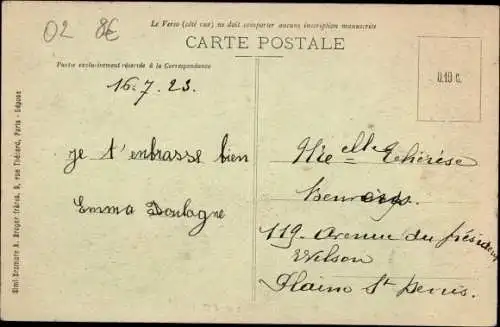 02 8€
Le Verso (côté vue) ne doit comporter aucune inscription manuscrite
CARTE POSTALE
Partie exclusivement réservée à la Correspondance
0.10 c.
16.7.23.
je t'enbrasse bien
Emma Doulagne
Mlle Thérèse
119 Avenue du président
Wilson
Plaine St Denis
Simi-Bromure A. Breger frères, 9, rue Thénard, Paris - Déposé